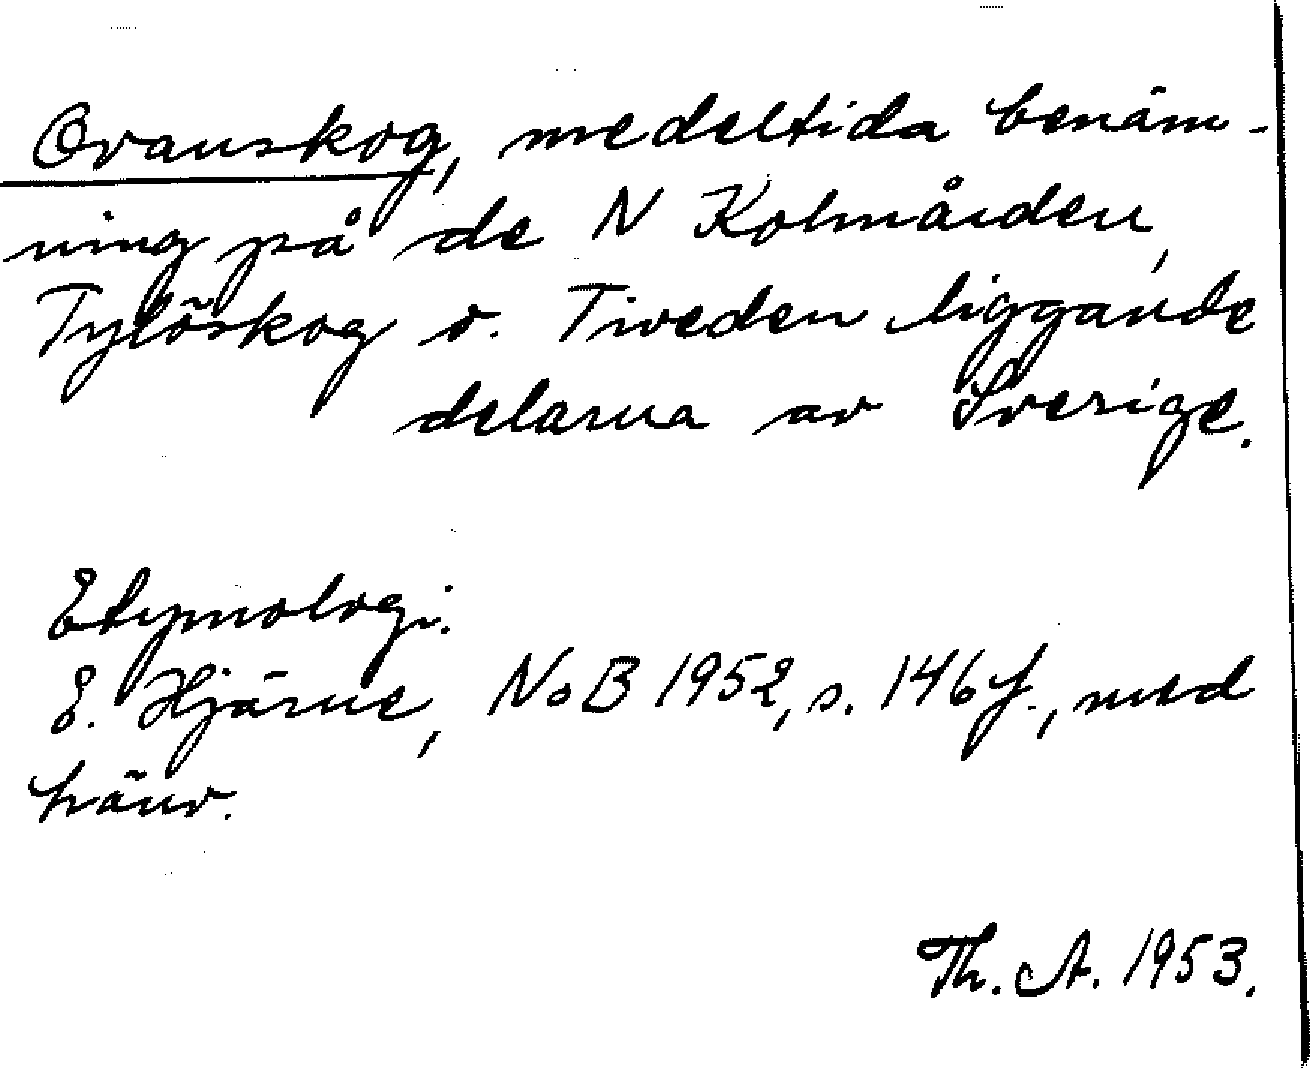 Ovanskog, medeltida benäm-
ning på de N Kolmården,
Tylöskog o. Tiveden liggande
delarna av Sverige.
Etymologi.
E. Hjärne, NoB 1952, s. 146 f., med
hänv.
Th. A. 1953.